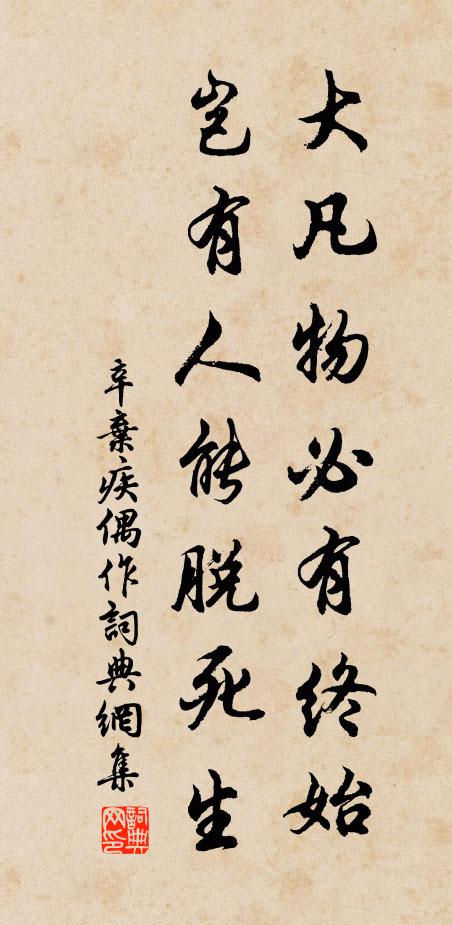 大凡物必有终始
岂有人能脱死生
辛棄疾偶作詞典網集
詞典
网印